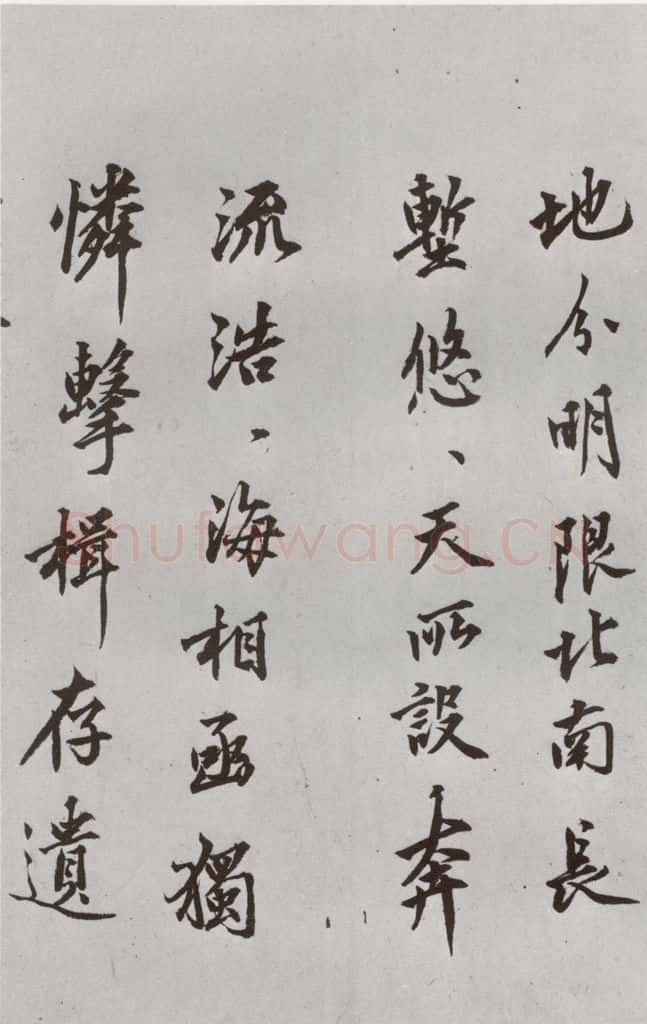 地分明限北南長
塹悠、天所設奔
流浩、海相函獨
憐擊楫存遺
Shufawang.CN